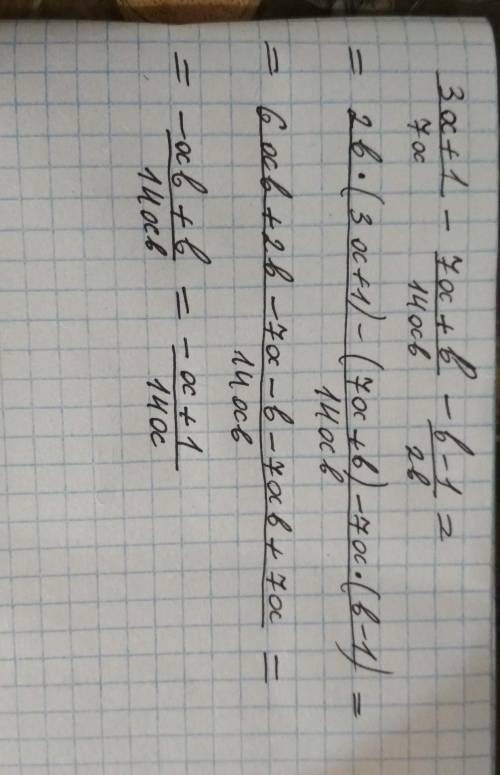 (3x+1)/(7x) - (7x+b)/(14xb) - (b-1)/(2b) =
= (2b·(3x+1) - (7x+b) - 7x·(b-1))/(14xb) =
= (6xb+2b-7x-b-7xb+7x)/(14xb) =
= (-xb+b)/(14xb) = (-x+1)/(14x)